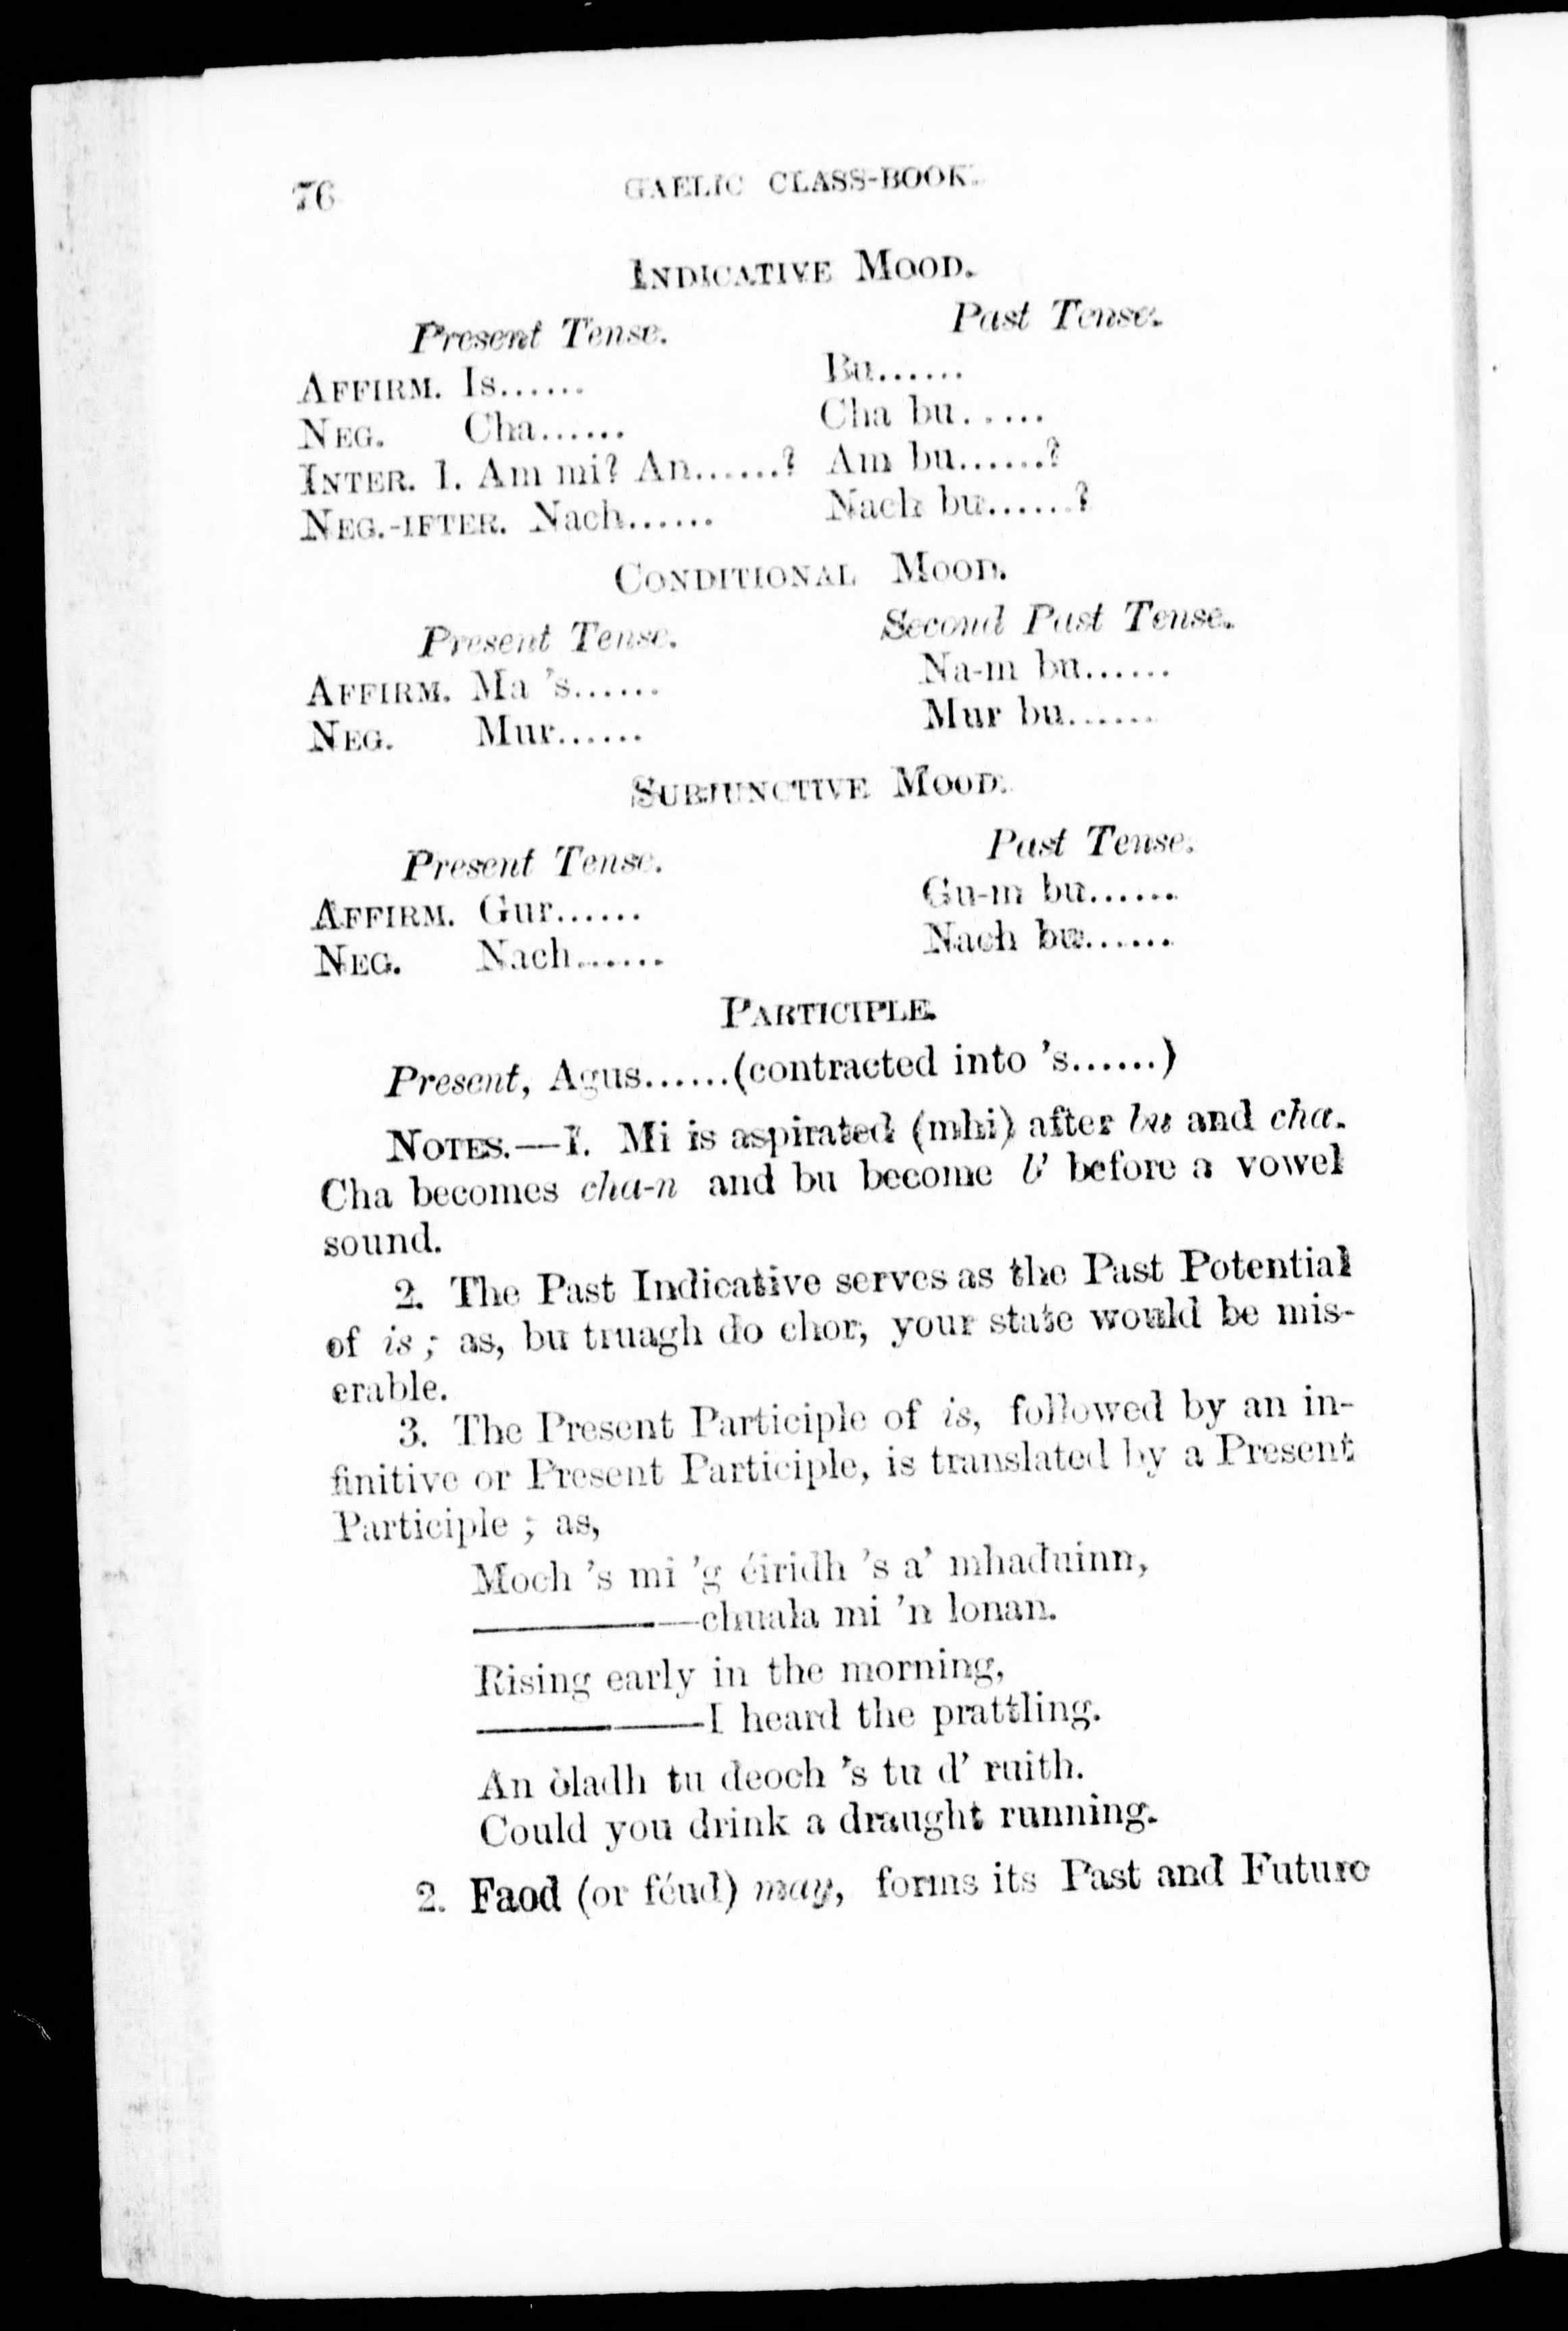 76 GAELIC CLASS-BOOK.
INDICATIVE MOOD.
Present Tense. Past Tense.
AFFIRM. Is...... Bu......
NEG. Cha...... Cha bu......
INTER. 1. Am mi? An......? Am bu......?
NEG.-IFTER. Nach...... Nach bu......?
CONDITIONAL MOOD.
Present Tense. Second Past Tense.
AFFIRM. Ma 's...... Na-m bu......
NEG. Mur...... Mur bu......
SUBJUNCTIVE MOOD.
Present Tense. Past Tense.
AFFIRM. Gur...... Gu-m bu......
NEG. Nach...... Nach bu......
PARTICIPLE.
Present, Agus......(contracted into 's......)
NOTES.—1. Mi is aspirated (mhi) after bu and cha.
Cha becomes cha-n and bu become b' before a vowel
sound.
2. The Past Indicative serves as the Past Potential
of is; as, bu truagh do chor, your state would be mis-
erable.
3. The Present Participle of is, followed by an in-
finitive or Present Participle, is translated by a Present
Participle; as,
Moch 's mi 'g éiridh 's a' mhaduinn,
————chuala mi 'n lonan.
Rising early in the morning,
————I heard the prattling.
An òladh tu deoch 's tu d' ruith.
Could you drink a draught running.
2. Faod (or féud) may, forms its Past and Future